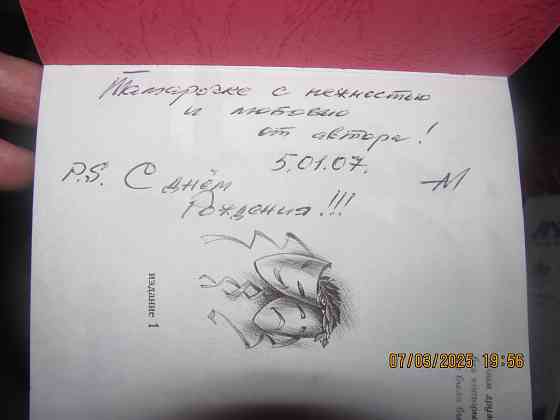 Тамарочке с нежностью
и любовью
от автора!
5.01.07.
P.S. С днём
Рождения!!!
издание 1
07/03/2025 19:56